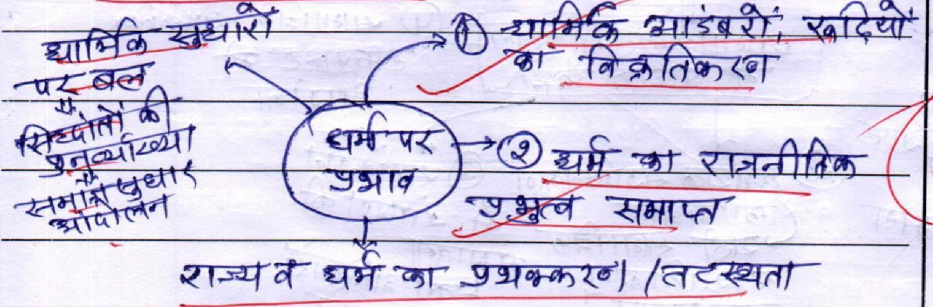 धार्मिक सुधारों
पर बल
⇓
सिध्दांतों की
पुनर्व्याख्या
⇓
समाज सुधार
आंदोलन
धर्म पर
प्रभाव
① धार्मिक आडंबरों, रूढ़ियों
का विकृतिकरण
② धर्म का राजनीतिक
प्रभुत्व समाप्त
राज्य व धर्म का पृथक्करण / तटस्थता